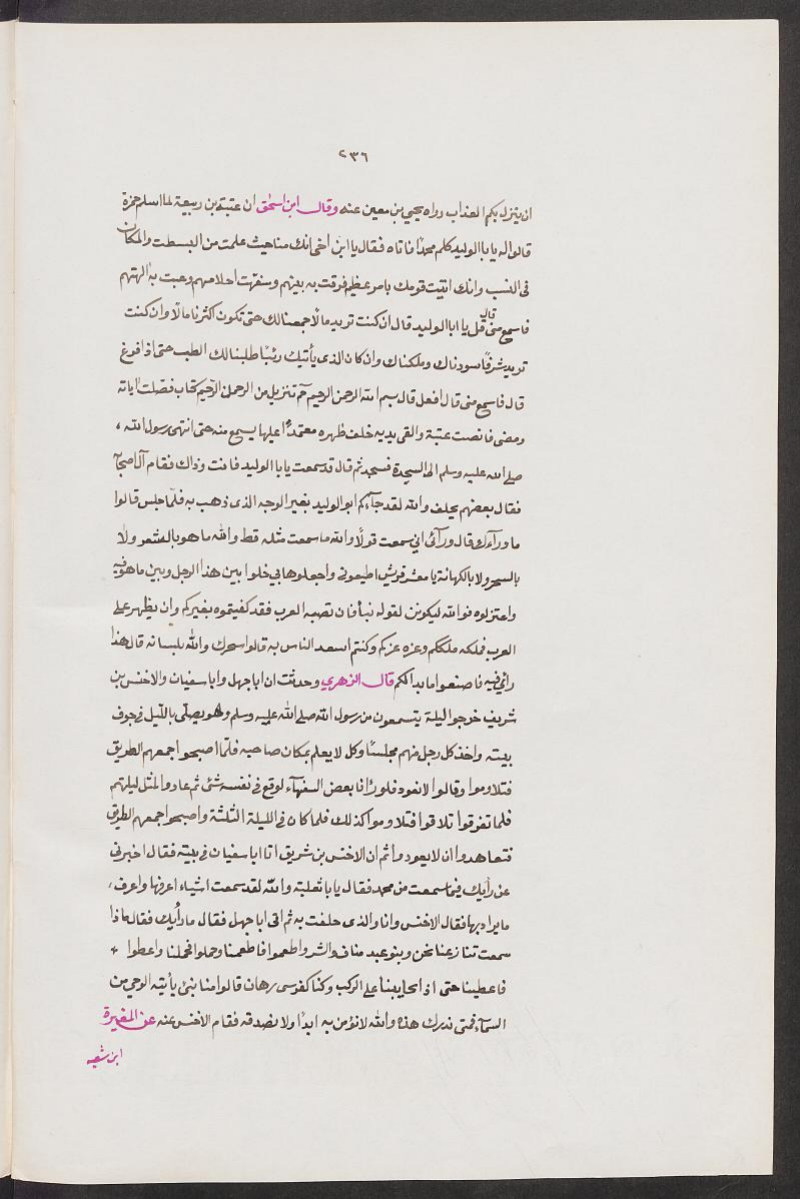 ٢٣٦
ان ينزل بكم العذاب رواه يحيى بن معين عنه وقال ابن اسحق ان عتبة بن ربيعة لما اسلم حمزة
قالوا له يا ابا الوليد كلم محمدًا فاتاه فقال يا ابن اخي انك منا حيث علمت من البسطت والمكان
في النسب وانك اتيت قومك بامر عظيم فرقت به بينهم وسفهت احلامهم وعبت به الهتهم
فاسمع منى قال قل يا ابا الوليد قال ان كنت تريد مالًا جمعنا لك حتى تكون اكثرنا مالًا وان كنت
تريد شرفًا سودناك وملكناك وان كان الذي يأتيك رئيًا طلبنا لك الطب حتى اذا فرغ
قال فاسمع منى قال افعل قال بسم الله الرحمن الرحيم حم تنزيل من الرحمن الرحيم كتاب فصلت اياته
ومضى فانصت عتبة والقى يديه خلف ظهره معتمدًا عليها يسمع منه حتى انتهى رسول الله
صلى الله عليه وسلم الى السجدة فسجد ثم قال قد سمعت يا با الوليد فانت وذاك فقام الى اصحابه
فقال بعضهم يحلف والله لقد جآءكم ابو الوليد بغير الوجه الذي ذهب به فلما جلس قالوا
ما ورآءك قال ورآئى اني سمعت قولًا والله ما سمعت مثله قط والله ما هو بالشعر ولا
بالسحر ولا بالكهانة يا معشر قريش اطيعوني واجعلوها بي خلوا بين هذا الرجل وبين ما هو فيه
واعتزلوه فوالله ليكونن لقوله نبأ فان تصبه العرب فقد كفيتموه بغيركم وان يظهر على
العرب فملكه ملككم وعزه عزكم وكنتم اسعد الناس به قالوا سحرك والله بلسانه قال هذا
رائي فيه فاصنعوا ما بدا لكم قال الزهري وحدثت ان ابا جهل وابا سفيان والاخنس بن
شريف خرجوا ليلة يتسمعون من رسول الله صلى الله عليه وسلم وهو يصلى بالليل في جوف
بيته واخذ كل رجل منهم مجلسًا وكل لا يعلم بمكان صاحبه فلما اصبحوا جمعهم الطريق
فتلاوموا وقالوا لا نعود فلو رانا بعض السفهآء لوقع في نفسه شئ ثم عادوا لمثل ليلتهم
فلما تفرقوا تلاقوا فتلاوموا كذلك فلما كان في الليلة الثلثة واصبحوا جمعهم الطريق
فتعاهدوا ان لا يعودوا ثم ان الاخنس بن شريق اتا ابا سفيان في بيته فقال اخبرنى
عن رأيك فيما سمعت من محمد فقال يا با ثعلبة والله لقد سمعت اشياء اعرفها واعرف
ما يراد بها فقال الاخنس وانا والذى حلفت به ثم اتى ابا جهل فقال ما رأيك فقال ماذا
سمعت تنازعنا نحن وبنو عبد مناف الشر واطعموا فاطعمنا وحملوا فحملنا واعطوا
فاعطينا حتى اذا تحاببنا على الركب وكنا كفرسى رهان قالوا منا نبئ يأتيه الوحي من
السمآء فمتى ندرك هذه والله لا نؤمن به ابدًا ولا نصدقه فقام الاخنس عنه عن المغيرة
ابن شعبه